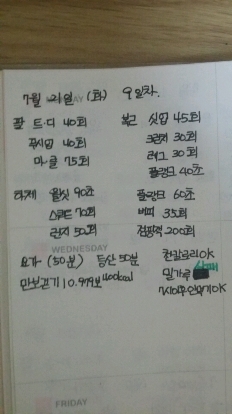 7월 21일 (화) 9일차.
팔 트.디 40회
푸시업 40회
마.클 75회
복근 싯업 45회
크런치 30회
레그 30회
플랭크 40초
하체 월싯 90초
스쿼트 70회
런지 50회
플랭크 60초
버피 35회
점핑잭 200회
WEDNESDAY
요가 (50분) 등산 50분
만보걷기 10.979보 400kcal
칸칼로리OK
밀가루 실패
7시이후안먹기OK
FRIDAY